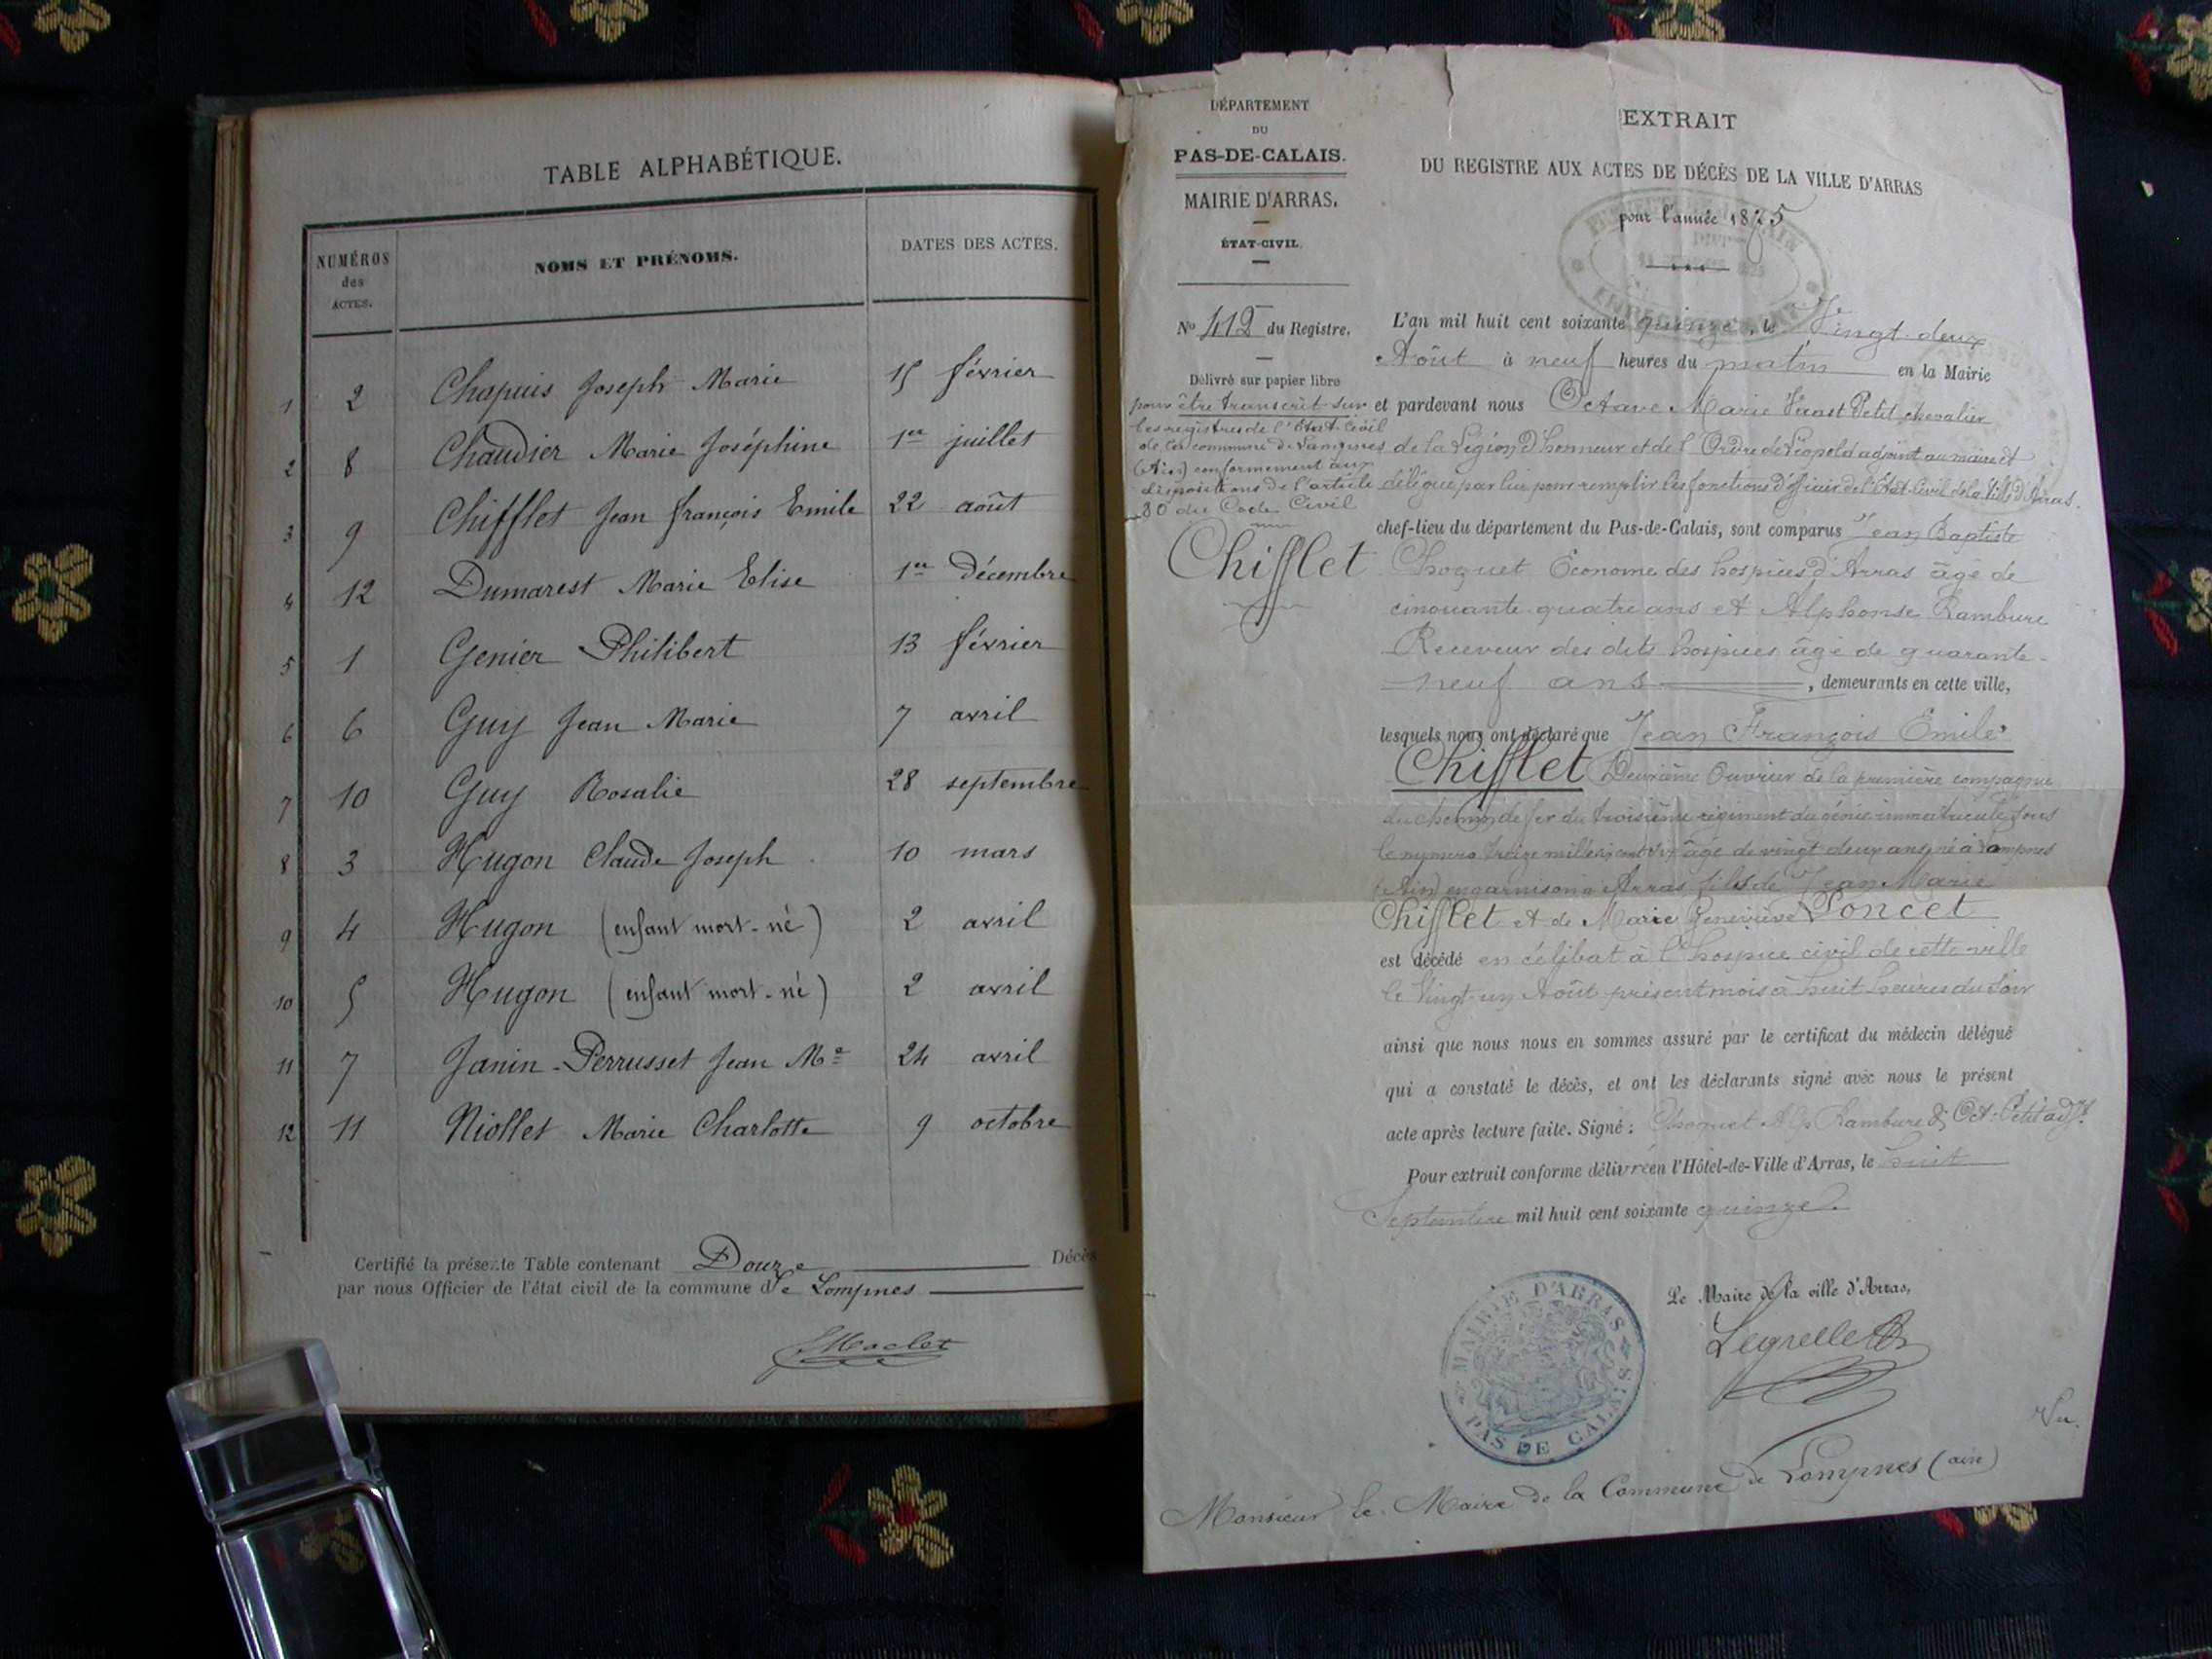 TABLE ALPHABÉTIQUE.
NUMÉROS des ACTES.
NOMS ET PRÉNOMS.
DATES DES ACTES.
1 2 Chapuis Joseph Marie 15 février
2 8 Chaudier Marie Joséphine 1er juillet
3 9 Chifflet Jean françois Emile 22 août
4 12 Dumarest Marie Elise 1er décembre
5 1 Genier Philibert 13 février
6 6 Guy Jean Marie 7 avril
7 10 Guy Rosalie 28 septembre
8 3 Hugon Claude Joseph 10 mars
9 4 Hugon (enfant mort-né) 2 avril
10 5 Hugon (enfant mort-né) 2 avril
11 7 Janin-Perrusset Jean Me 24 avril
12 11 Niollet Marie Charlotte 9 octobre
Certifié la présente Table contenant Douze Décès
par nous Officier de l'état civil de la commune de Lompnes
DÉPARTEMENT
DU
PAS-DE-CALAIS.
MAIRIE D'ARRAS.
ÉTAT-CIVIL.
No 412 du Registre.
Délivré sur papier libre
pour être transcrit sur
les registres de l'Etat-Civil
de la commune de Lompnes
(Ain) conformément aux
dispositions de l'article
80 du Code Civil
Chifflet
EXTRAIT
DU REGISTRE AUX ACTES DE DÉCÈS DE LA VILLE D'ARRAS
pour l'année 1875
L'an mil huit cent soixante quinze, le Vingt-deux
Août à neuf heures du matin en la Mairie
et pardevant nous Octave Marie Vaast Petit chevalier
de la Légion d'honneur et de l'Ordre de Léopold adjoint au maire et
délégué par lui pour remplir les fonctions d'officier de l'Etat-Civil de la Ville d'Arras.
chef-lieu du département du Pas-de-Calais, sont comparus Jean Baptiste
Choquet Econome des hospices d'Arras âgé de
cinquante-quatre ans et Alphonse Rambure
Receveur des dits hospices âgé de quarante-
neuf ans, demeurants en cette ville,
lesquels nous ont déclaré que Jean François Emile
Chifflet Deuxième Ouvrier de la première compagnie
du chemin de fer du troisième régiment du génie immatriculé sous
le numéro treize mille six cent âgé de vingt deux ans né à Lompnes
(Ain) en garnison à Arras fils de Jean Marie
Chifflet et de Marie Geneviève Poncet
est décédé en célibat à l'hospice civil de cette ville
le Vingt-un Août présent mois à huit heures du soir
ainsi que nous nous en sommes assuré par le certificat du médecin délégué
qui a constaté le décès, et ont les déclarants signé avec nous le présent
acte après lecture faite. Signé: Choquet Alp. Rambure & Oct. Petit adjt.
Pour extrait conforme délivré en l'Hôtel-de-Ville d'Arras, le huit
Septembre mil huit cent soixante quinze.
Le Maire de la ville d'Arras,
Legrelle
MAIRIE D'ARRAS
PAS DE CALAIS
Vu.
Monsieur le Maire de la Commune de Lompnes (ain)